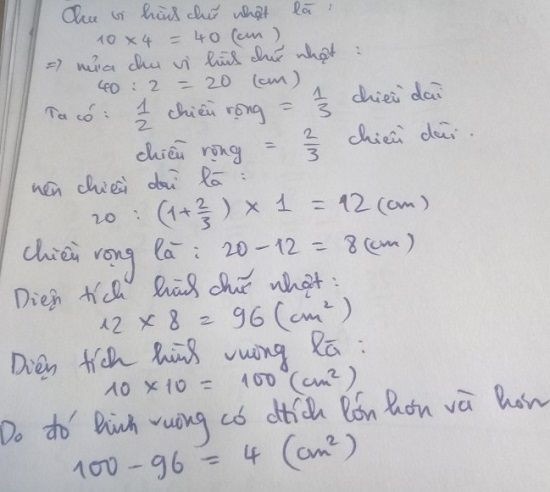 Chu vi hình chữ nhật là :
10 × 4 = 40 (cm)
=> nửa chu vi hình chữ nhật :
40 : 2 = 20 (cm)
Ta có : 1/2 chiều rộng = 1/3 chiều dài
chiều rộng = 2/3 chiều dài.
nên chiều dài là :
20 : (1+2/3) × 1 = 12 (cm)
Chiều rộng là : 20 - 12 = 8 (cm)
Diện tích hình chữ nhật :
12 × 8 = 96 (cm²)
Diện tích hình vuông là :
10 × 10 = 100 (cm²)
Do đó hình vuông có dtích lớn hơn và hơn
100 - 96 = 4 (cm²)